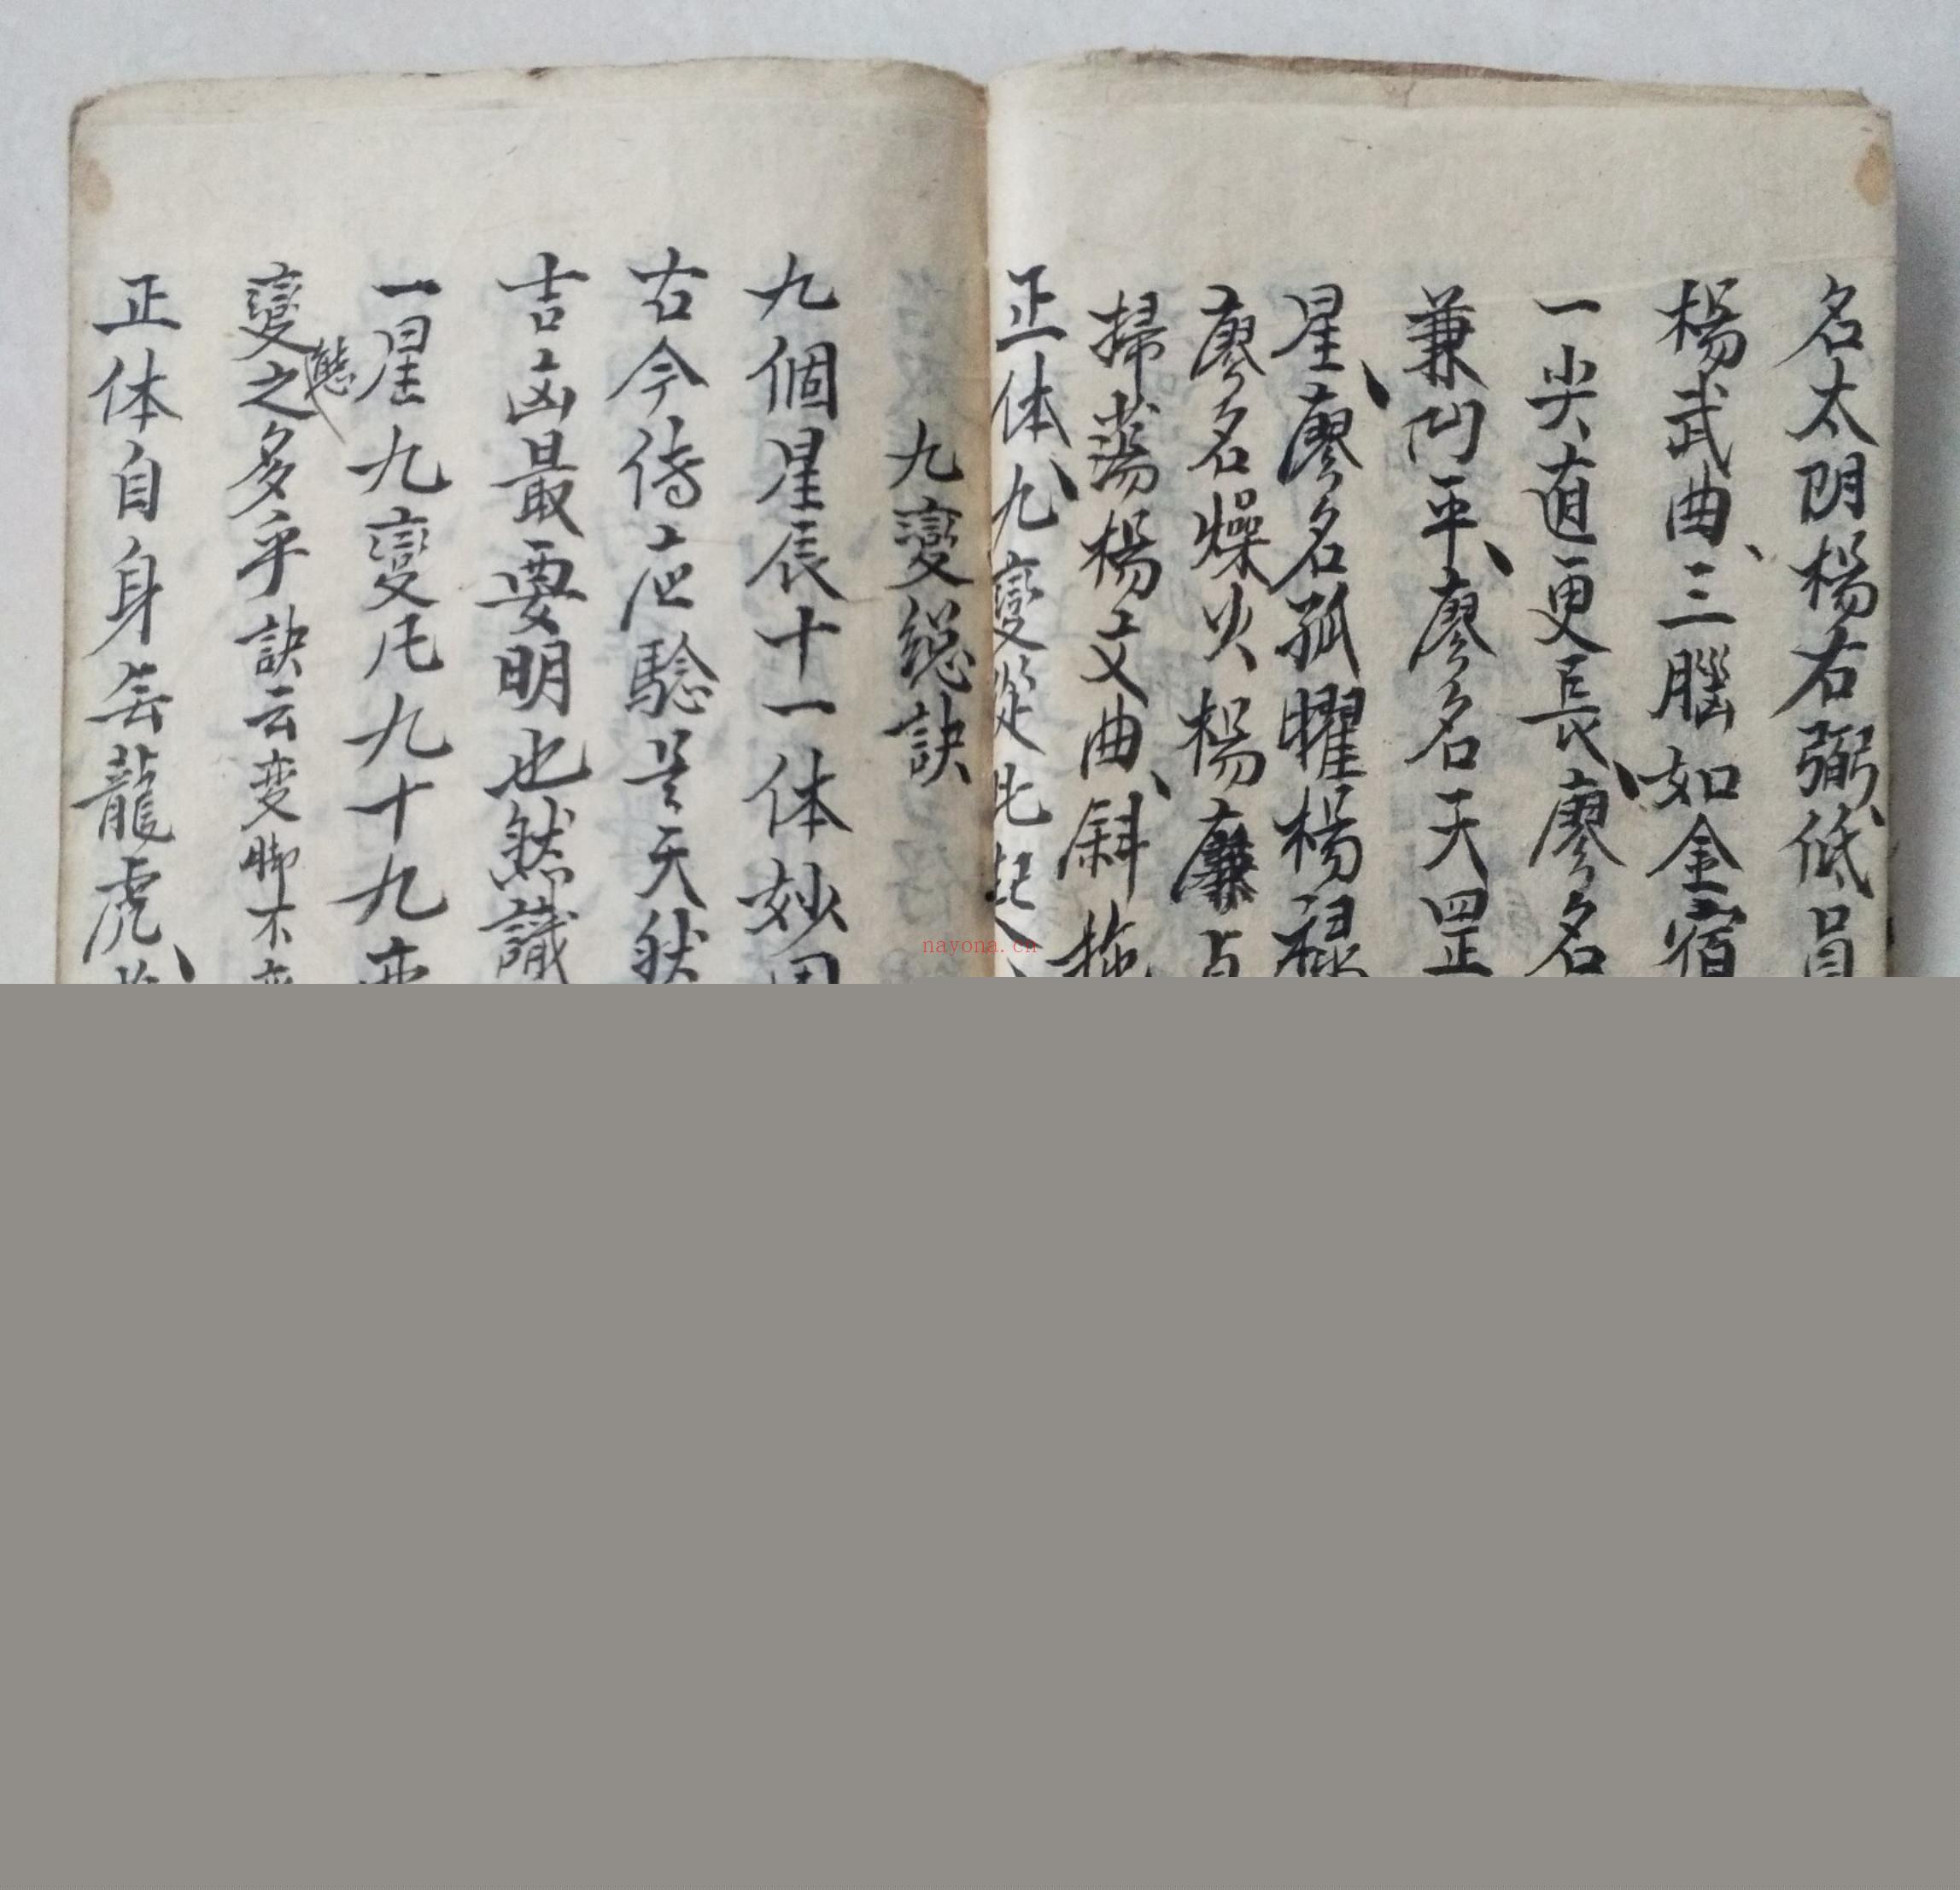 名太阴楊右弼低員
楊武曲三腦如金宿
一尖直更長廖名
兼凹平廖名天罡
星廖名孤曜楊祿
廖名燥火楊廉貞
掃蕩楊文曲斜拖
正体九變從此起
九變総訣
九個星辰十一体妙用
古今傳应驗是天然
吉凶最要明也然識
一星九變凡九十九变
態
變之多乎訣云变脚不变
正体自身無龍虎
nayona.cn